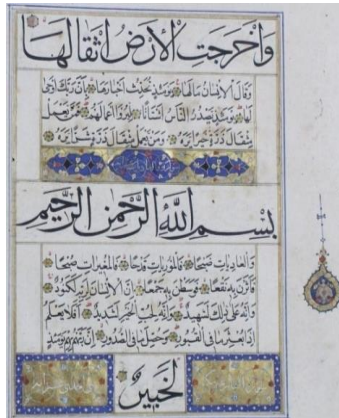 وَأَخْرَجَتِ الْأَرْضُ أَثْقَالَهَا
وَقَالَ الْإِنْسَانُ مَا لَهَا يَوْمَئِذٍ تُحَدِّثُ أَخْبَارَهَا بِأَنَّ رَبَّكَ أَوْحَىٰ
لَهَا يَوْمَئِذٍ يَصْدُرُ النَّاسُ أَشْتَاتًا لِيُرَوْا أَعْمَالَهُمْ فَمَنْ يَعْمَلْ
مِثْقَالَ ذَرَّةٍ خَيْرًا يَرَهُ وَمَنْ يَعْمَلْ مِثْقَالَ ذَرَّةٍ شَرًّا يَرَهُ
بِسْمِ اللَّهِ الرَّحْمَٰنِ الرَّحِيمِ
وَالْعَادِيَاتِ ضَبْحًا فَالْمُورِيَاتِ قَدْحًا فَالْمُغِيرَاتِ صُبْحًا
فَأَثَرْنَ بِهِ نَقْعًا فَوَسَطْنَ بِهِ جَمْعًا إِنَّ الْإِنْسَانَ لِرَبِّهِ لَكَنُودٌ
وَإِنَّهُ عَلَىٰ ذَٰلِكَ لَشَهِيدٌ وَإِنَّهُ لِحُبِّ الْخَيْرِ لَشَدِيدٌ أَفَلَا يَعْلَمُ
إِذَا بُعْثِرَ مَا فِي الْقُبُورِ وَحُصِّلَ مَا فِي الصُّدُورِ إِنَّ رَبَّهُمْ بِهِمْ يَوْمَئِذٍ
لَخَبِيرٌ